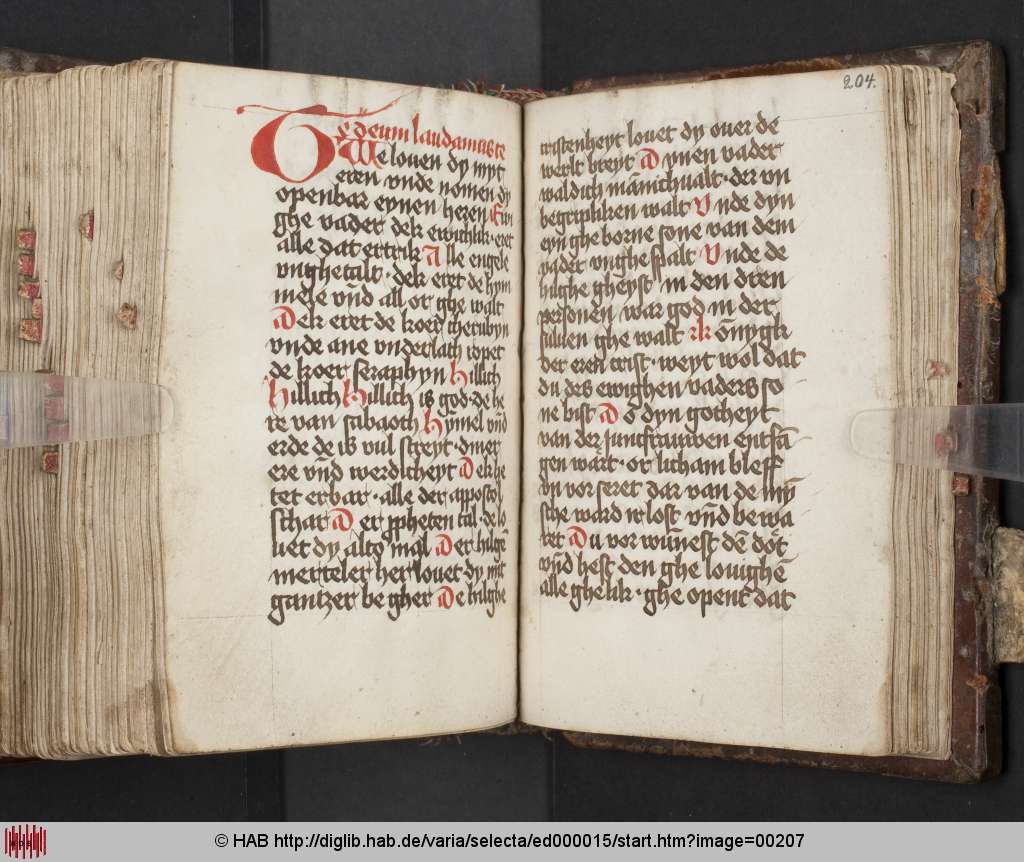 Te deum laudamus te
We loven dy myt
eren vnde nomen dy
openbar eynen heren Ewi
ghe vader dek ewichlik · eret
alle dat ertrik Alle engele
vnghetalt · dek eret de hym
mele vn̄d all or ghe walt
Dek eret de koer cherubyn
vnde ane vnderlath ropet
de koer seraphyn hillich
hillich hillich is god · de he
re van sabaoth hymel vn̄d
erde de is vul streyt · dyner
ere vnd werdicheyt Dek be
tet erbar · alle der appostol
schar Der ppheten tal · de lo
uet dy alto mal Der hilgē
merteler her louet dy myt
gantzer be gher De hilghe
204.
cristenheyt louet dy ouer de
werlt breyt Dynen vader
waldich mānichualt · der vn
begripliken walt Vnde dyn
eyn ghe borne sone van dem
vader vnghe stalt Vnde de
hilghe gheyst · in den dren
personen war god in der
suluen ghe walt koͤnygk
der eren crist · weyt wol dat
du des ewighen vaders so
ne bist Dō dyn gotheyt
van der junkfrauwen entfā
gen wart · or licham bleff
vn vor seret dar van de my̅
sche ward irlost vn̄d be wa
ret Du vor wu̅nest dē doͤt
vn̄d hest den ghe louighē
alle ghelik · ghe opent dat
© HAB http://diglib.hab.de/varia/selecta/ed000015/start.htm?image=00207